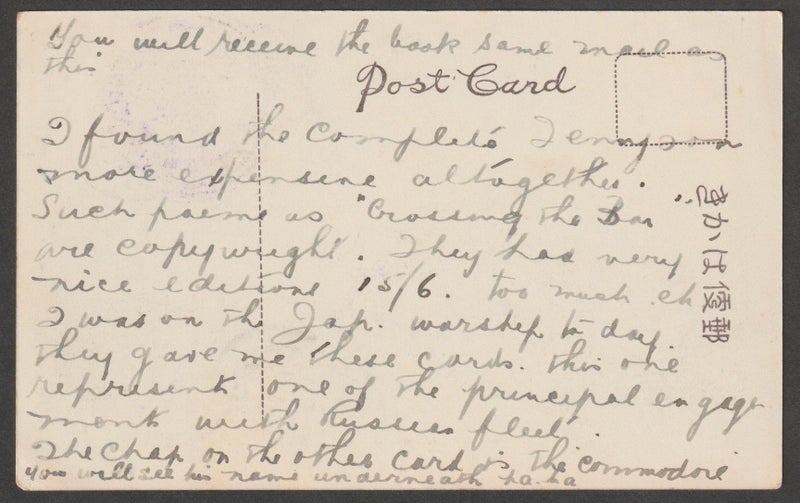 You will receive the book same mail as
this
Post Card
I found the complete Tennyson
more expensive altogether.
Such poems as "Crossing the Bar"
are copywright. They had very
nice editions 15/6. too much eh
I was on the Jap. warship to day.
they gave me these cards. this one
represent one of the principal engage
ment with Russian fleet.
The chap on the other card is the commodore
you will see his name underneath ha ha
きかは便郵